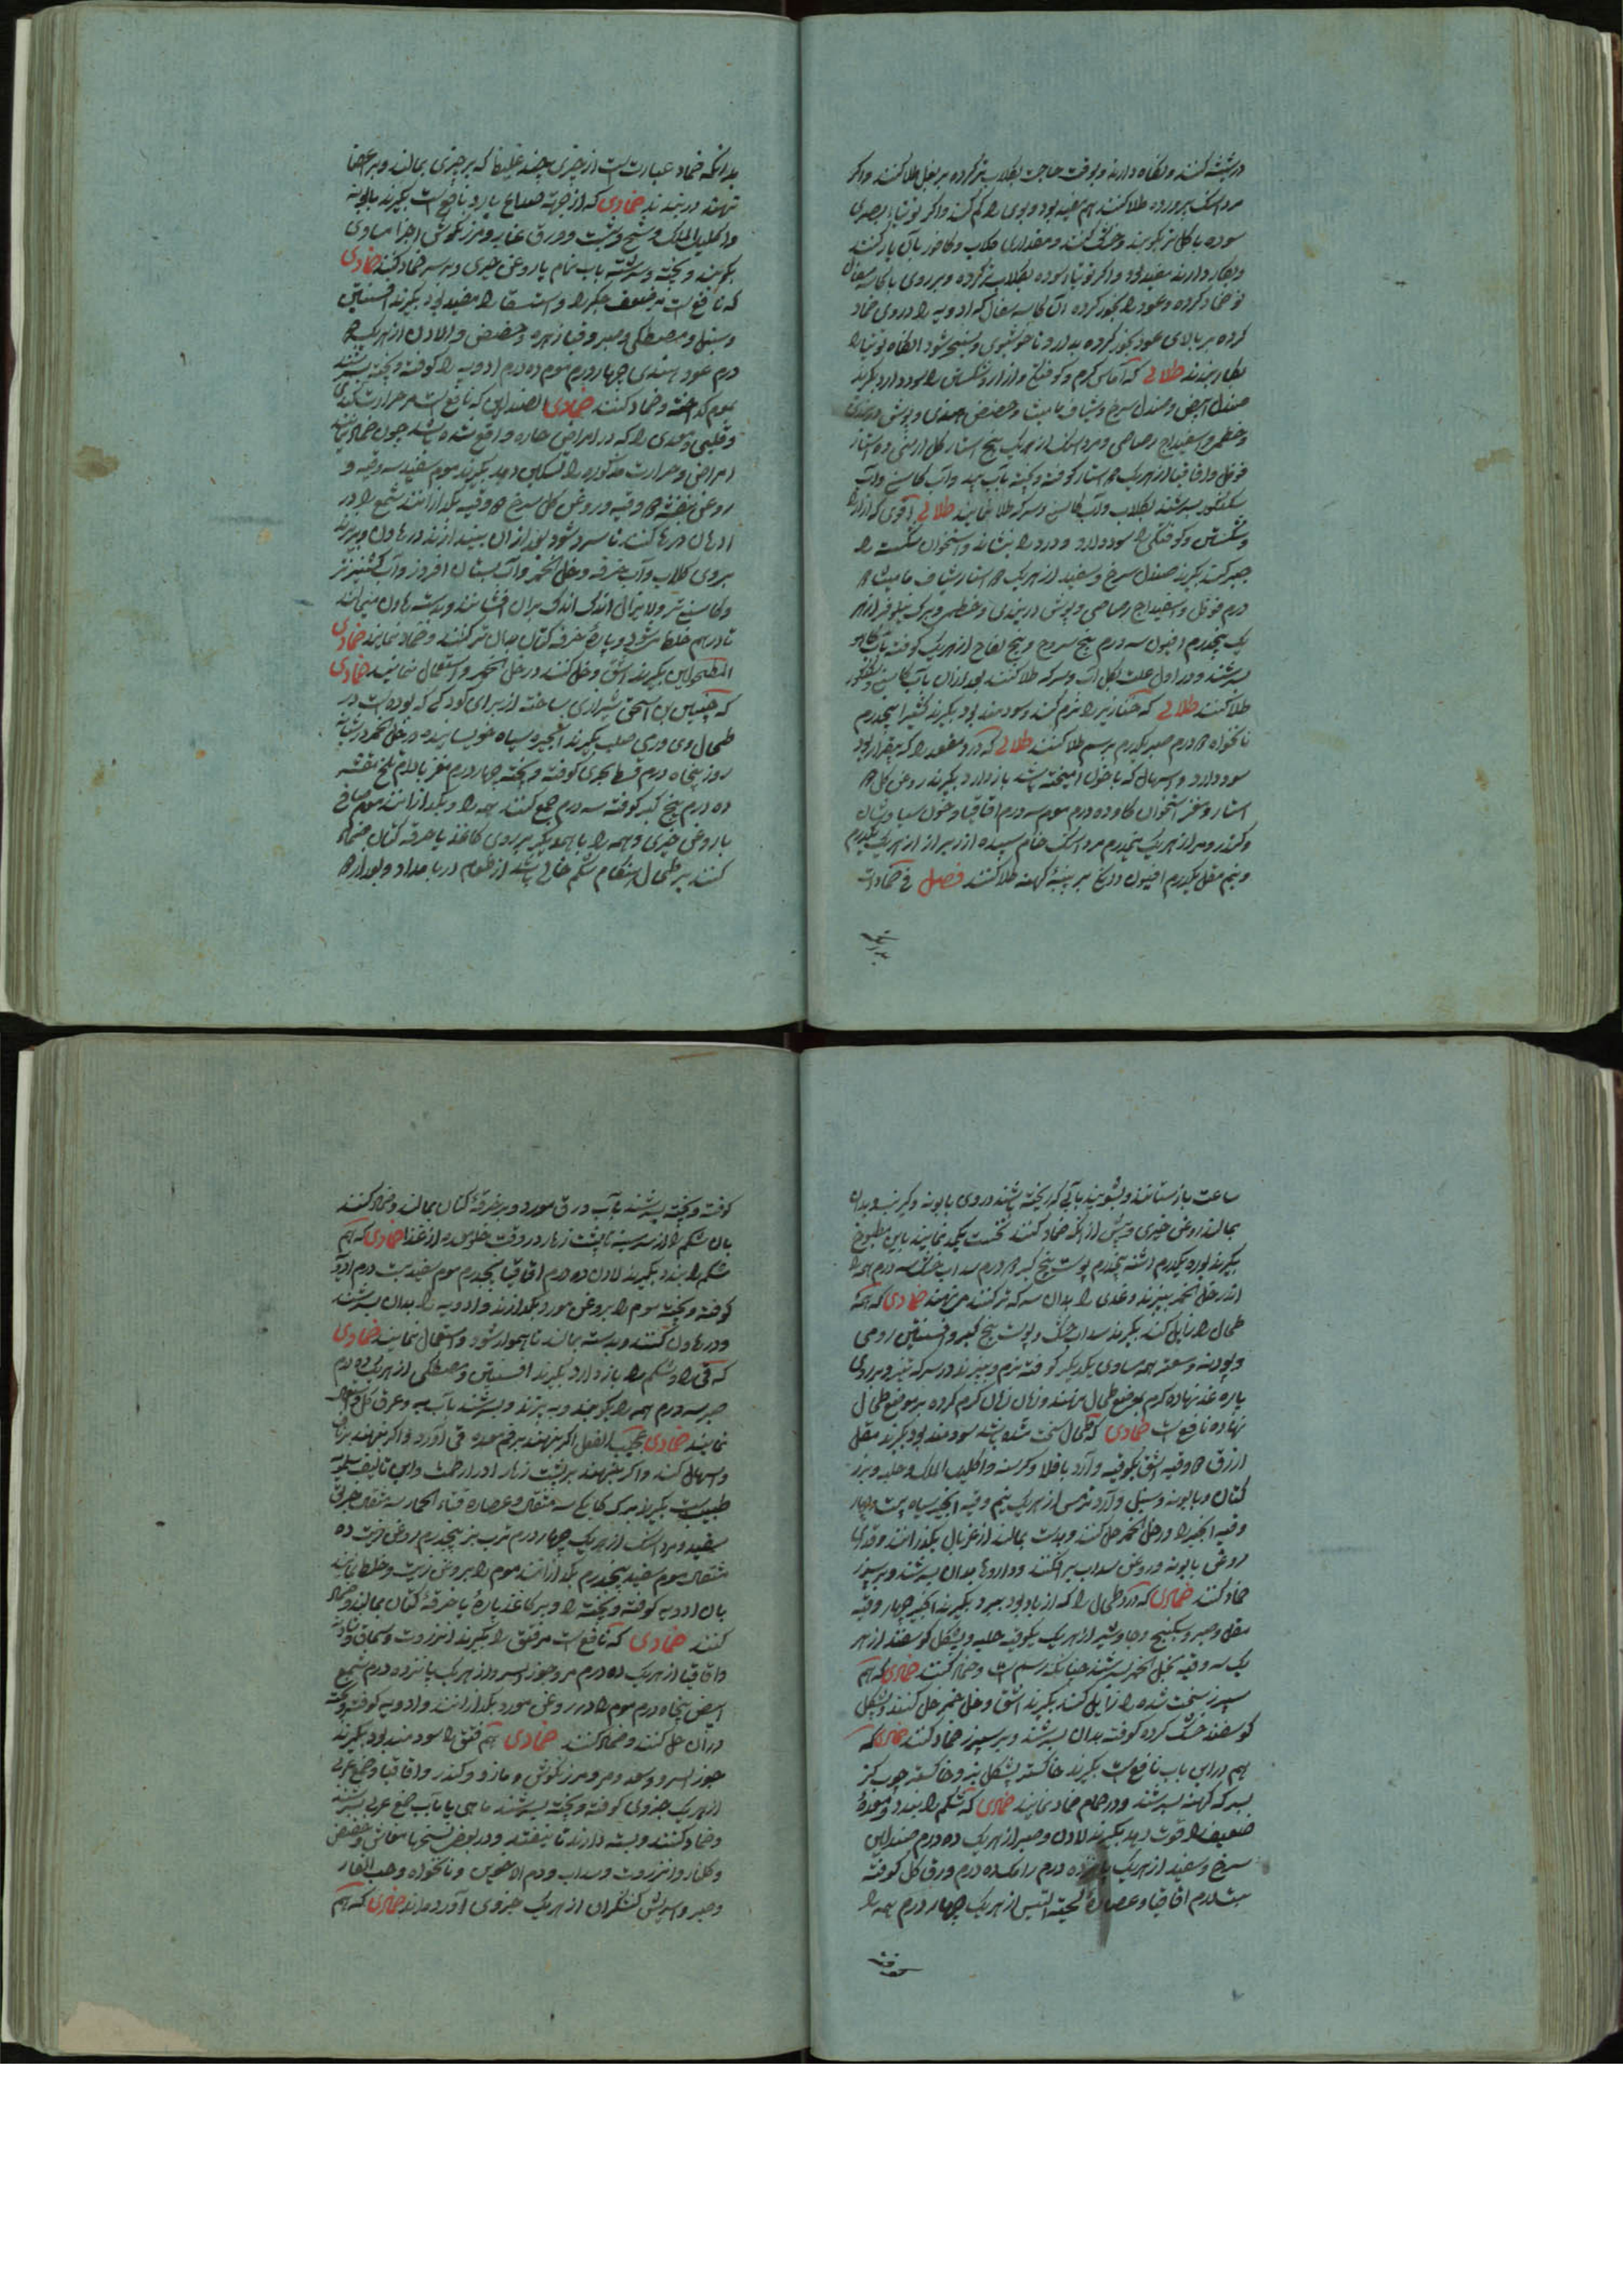 درشته کنند و نگاه دارند و بوقت حاجت بگلاب تر کرده بر بغل طلا کنند و اگر
مرداسنک پرورده طلا کنند هم مفید بود و بوی را کم کند و اگر توتیاء بصری
سوده با گل تر بکوبند و خشک کنند و مقداری گلاب و کافور بآن یار کنند
و بکار دارند مفید بود و اگر توتیاء سوده بگلاب تر کرده و بر روی یا کاسه سفال
نو ضماد کرده و عود را بخور کرده آن کاسه سفال که ادویه را در وی ضماد
کرده بر بالای عود بخور کرده بدارد تا خوشبوی و شود انگاه توتیا را
بکار برند طلائی که آماس گرم و کوفتگی و ازار و شکستن را سود دارد بگیرند
صندل ابیض و صندل سرخ و شیاف مامیثا و حضض هندی و بوش دربندی
و خطمی و اسفیداج رصاصی و مرداسنک از هر یک پنج استار گل ارمنی ده استار
فوفل و اقاقیا از هر یک استار کوفته و بیخته بآب بید و آب کاسنی و آب
بسرشند بگلاب و آب کاسنی و سرکه طلا نمایند طلائی اقوی که ازار
و شکستن و کوفتگی را سود دارد و درد را بنشاند و استخوان شکسته را
جبر کند بگیرند صندل سرخ و سفید از هر یک استار شیاف مامیثا
درم فوفل و اسفیداج رصاصی و بوش دربندی و خطمی و برک نیلوفر از هر
یک پنجدرم افیون سه درم بیخ سروج و بیخ لفاح از هر یک کوفته بآب کاهو
بسرشند و در اول علت بگل آب و سرکه طلا کنند بعد از آن بآب کاسنی و
طلا کنند طلائی که خنازیر را نرم کند و سودمند بود بگیرند کثیرا پنجدرم
نانخواه درم صبر یکدرم برسم طلا کنند طلائی که درد مقعد را که بیقرار بود
سود دارد و اسهال که با خون امیخته باشد باز دارد بگیرند روغن گل
استار و مغز استخوان گاو ده درم موم سه درم اقاقیا و خون سیاوشان
و کندر و مر از هر یک نیمدرم مرداسنک خام سپیده ارزیز از هر یک یکدرم
و نیم مقل یکدرم افیون دانگی بر پنبه کهنه طلا کنند فصل فی ضمادات
بدانکه ضماد عبارتست از چیزی چند غلیظ که بر چیزی بمالند و بر اعضا
نهند و بربندند ضمادی که از جهة صداع بارد نافع است بگیرند بابونه
و اکلیل الملک و شیح و شبت و ورق غار و مرزنکوش اجزا مساوی
بکوبند و بیخته و سرشته بآب نمام با روغن خیری و بر سر ضماد کنند ضمادی
که نافع است مر ضعف جگر را و استسقا را مفید بود بگیرند افسنتین
و سنبل و مصطکی و صبر و قصب الذریره و حضض و لادن از هر یک
درم عود هندی چهار درم موم ده درم ادویه را کوفته و بیخته بسرشند
بموم گداخته و ضماد کنند ضمادی الصندلین که نافع است مر حرارت کبدی
و قلبی و معدی را که در امراض حاره واقع شده باشد چون ضماد نمایند
امراض و حرارت مذکوره را تسکین دهد بگیرند موم سفید سه وقیه و
روغن بنفشه وقیه و روغن گل سرخ وقیه بگدازانند شمع را در
ادهان و رها کنند تا سرد شود بعد از آن بیندازند در هاون و بریزند
بر وی گلاب و آب خرفه و خل الخمر و آب بستان افروز و آب کشنیز تر
و کاسنی تر و لایزال اندک اندک بر آن افشانند و بدسته هاون میمالند
تا درهم خلط شود و پاره خرفه کتان بدان تر کنند و ضماد نمایند ضمادی
المطحولین بگیرند اشق و حل کنند در خل الخمر و استعمال نمایند ضمادی
که حنین بن اسحق شیرازی ساخته از برای کودکی که بوده است در
طحال وی ورمی صلب بگیرند انجیر سیاه خویسانیده در خل الخمر در شبانه
روز پنجاه درم قسط بحری کوفته و بیخته چهار درم مغز بادام تلخ مقشر
ده درم بیخ کبر کوفته سه درم جمع کنند همه را و بگدازانند موم صافی
با روغن خیری و همه را با همدیگر بر روی کاغذ یا خرقه کتان ضماد
کنند بر طحال هنکام شکم خالی باشد از طعام در بامداد و بعد از
ساعت باز ستانند و بشویند بآبی که ریخته باشند در وی بابونه و کرنب و بدان
بمالند روغن خیری و پیش از انکه ضماد کنند نخست تکمید نمایند باین مطبوخ
بگیرند بوره یکدرم اشنه پنجدرم پوست بیخ کبر درم سداب خشک سه درم همه را
اندر خل الخمر بپزند و نمدی را بدان سرکه تر کنند می نهند ضمادی که همه
طحال را زایل کند بگیرند سداب خشک و پوست بیخ کبر و افسنتین رومی
و پودنه و سعتر همه مساوی یکدیگر کوفته نرم و بپزند در سرکه تیز و بر روی
پاره نمد نهاده گرم بموضع طحال می نهند و زمان زمان گرم کرده بر موضع طحال
نهاده نافع است ضمادی که طحال سخت شده باشد سودمند بود بگیرند مقل
ازرق وقیه اشق یکوقیه و آرد باقلا و کرسنه و اکلیل الملک و حلبه و بزر
کتان و بابونه و سنبل و آرد ترمس از هر یک نیم وقیه انجیر سیاه بیست و چهار
وقیه انجیر را در خل الخمر حل کنند و بدست بمالند از غربال بگذرانند و قدری
روغن بابونه و روغن سداب بر افکنند و داروها بدان بسرشند و بر سپرز
ضماد کنند ضمادی که درد طحال را که از باد بود ببرد بگیرند انجیر چهار وقیه
مقل و صبر و سکبینج و جاوشیر از هر یک یکوقیه حلبه و پشکل گوسفند از هر
یک سه وقیه بخل الخمر بسرشند چنانکه رسم است و ضماد کنند ضمادی که هم
سپرز سخت شده را زایل کند بگیرند اشق و خل خمر حل کنند و پشکل
گوسفند خشک کرده کوفته بدان بسرشند و بر سپرز ضماد کنند ضمادی که
هم در این باب نافع است بگیرند خاکستر پشکل بز و خاکستر چوب گز
بسرکه کهنه بسرشند و در حمام ضماد نمایند ضمادی که شکم را ببندد و معده
ضعیف را قوت دهد بگیرند لادن و صبر از هر یک ده درم صندلین
سرخ و سفید از هر یک پانزده درم رامک ده درم ورق گل کوفته
بیست درم اقاقیا و عصاره لحیة التیس از هر یک چهار درم همه را
کوفته و بیخته بسرشند بآب ورق مورد و بر خرقه کتان بمالند و ضماد کنند
بآن شکم را از سر سینه تا پشت زهار در وقت خلو معده از غذا ضمادی که هم
شکم را ببندد بگیرند لادن ده درم اقاقیا پنجدرم موم سفید بیست درم ادویه
کوفته و بیخته موم را بروغن مورد بگدازند و ادویه را بدان بسرشند
و در هاون کنند و بدسته بمالند تا هموار شود و استعمال نمایند ضمادی
که قی را و شکم را باز دارد بگیرند افسنتین و مصطکی از هر یک ده درم
صبر سه درم همه را بکوبند و به پزند و بسرشند بآب به و عرق گل و استعمال
نمایند ضمادی عجیب الفعل اگر بنهند بر فم معده قی آورد و اگر بنهند بر ناف
اسهال کند و اگر بنهند بر پشت زهار ادرار طمث و این تالیف سلمویه
طبیب است بگیرند برک کبابکی سه مثقال و عصاره قثاء الحمار سه مثقال خربق
سفید و مرداسنک از هر یک چهار درم ترب بز پنجدرم روغن زیت ده
مثقال موم سفید پنجدرم بگدازانند موم را بروغن زیت و خلط نمایند
بآن ادویه کوفته و بیخته را و بر کاغذ پاره یا خرقه کتان بمالند و ضماد
کنند ضمادی که نافع است مر فتق را بگیرند انزروت و سماق و
و اقاقیا از هر یک ده درم مر و جوز السرو از هر یک پانزده درم شمع
ابیض پنجاه درم موم را در روغن مورد بگدازانند و ادویه کوفته و بیخته
در آن حل کنند و ضماد کنند ضمادی هم فتق را سودمند بود بگیرند
جوز السرو و سعد و مر و مرزنکوش و مازو و کندر و اقاقیا و صمغ عربی
از هر یک جزوی کوفته و بیخته بسرشند ماهی یا بآب صمغ عربی بسرشند
و ضماد کنند و بسته دارند تا بیفتد و در بعض نسخها مغاث و حضض
و گلنار و انزروت و سداب و دم الاخوین و نانخواه و حب الغار
و صبر و سریش کفشگران از هر یک جزوی آورده اند ضمادی که هم